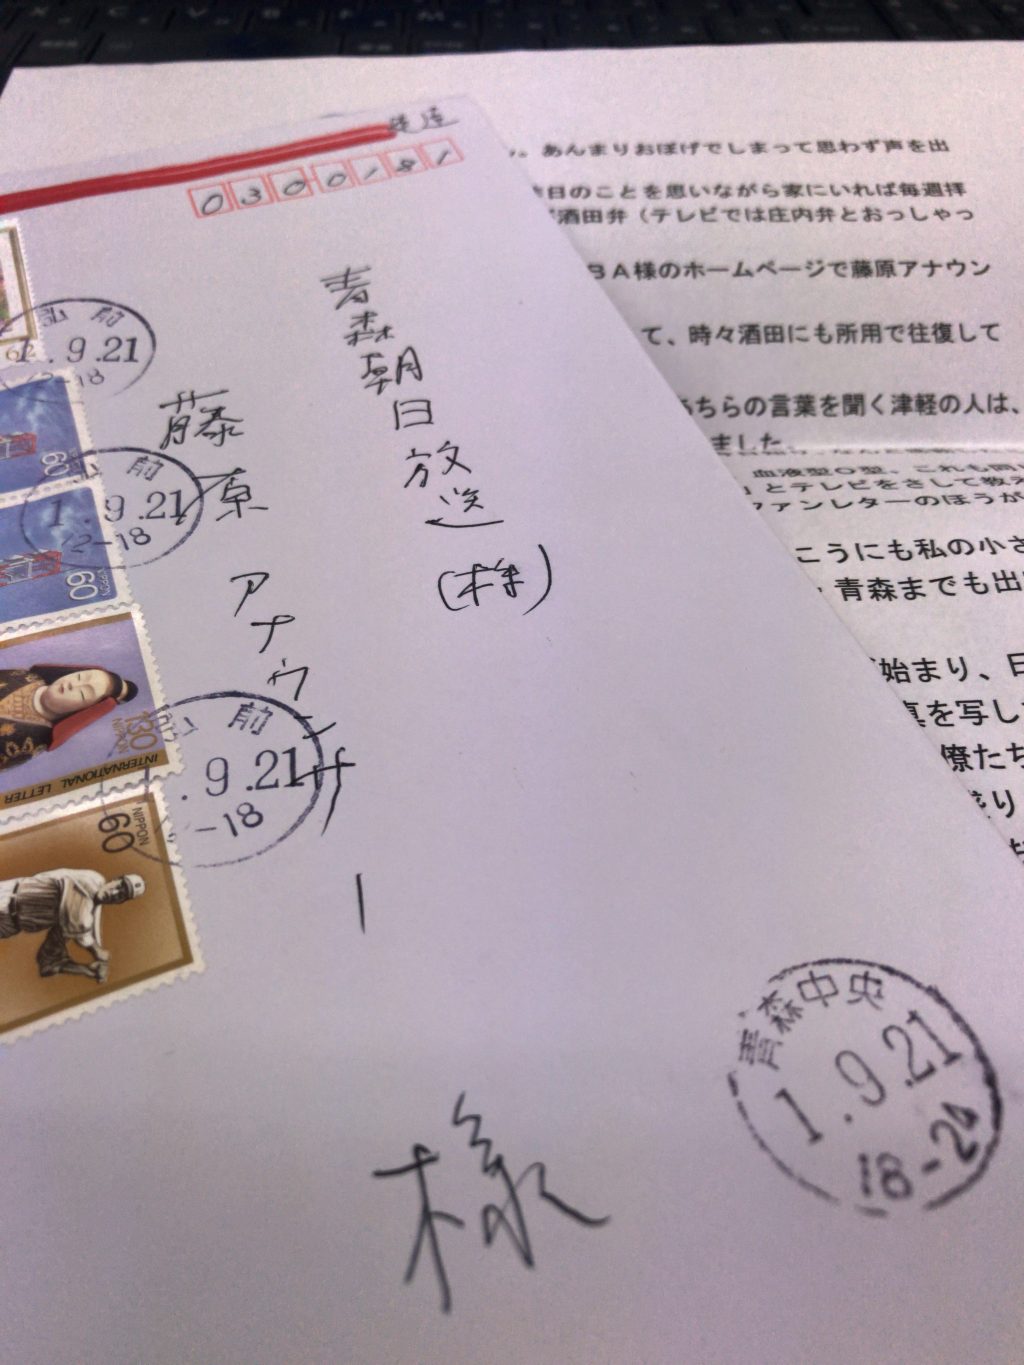 速達
0300181
青森朝日放送
(様)
藤原アナウンサー
様
弘前
1.9.21
12-18
前
1.9.21
12-18
前
.9.21
-18
青森中央
1.9.21
18-24
62
60
60
130
NIPPON
INTERNATIONAL LETTER
60
NIPPON
。あんまりおぼげでしまって思わず声を出
日のことを思いながら家にいれば毎週拝
酒田弁（テレビでは庄内弁とおっしゃっ
BA様のホームページで藤原アナウン
て、時々酒田にも所用で往復して
ちらの言葉を聞く津軽の人は、
ました。
血液型O型。これも同じ
」とテレビをさして教え
ファンレターのほうが
こうにも私の小さ
、青森までも出
始まり、日
真を写し
僚たち